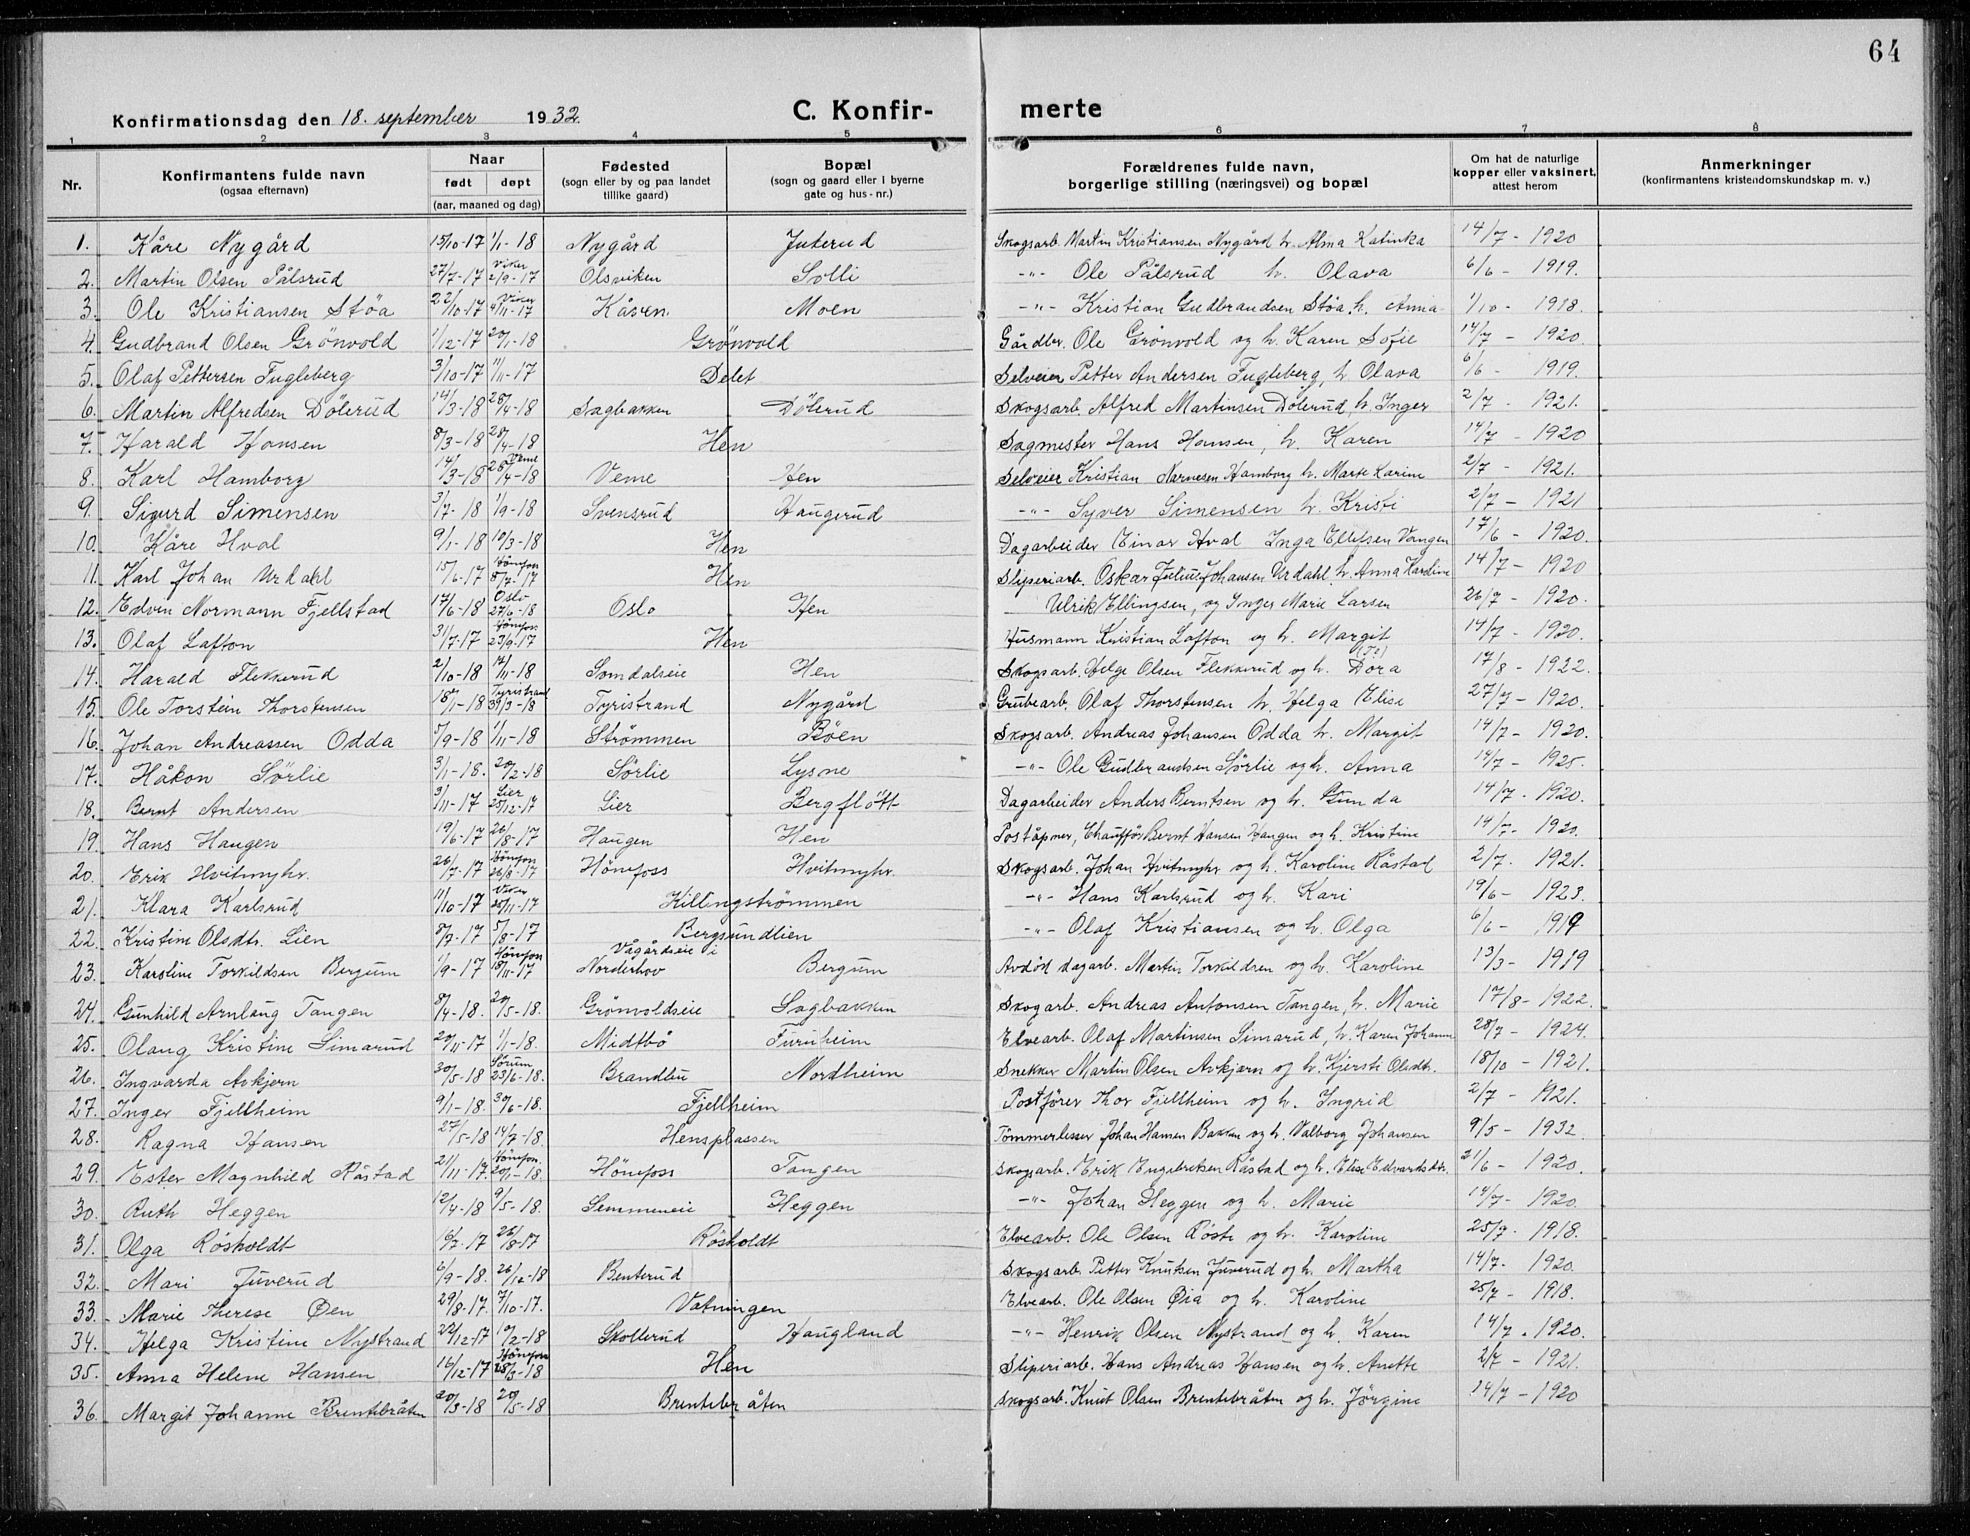 64
Konfirmationsdag den 18. september 1932.
C. Konfir-merte
1 2 3 4 5 6 7 8
Nr.
Konfirmantens fulde navn
(ogsaa efternavn)
Naar
født døpt
(aar, maaned og dag)
Fødested
(sogn eller by og paa landet
tillike gaard)
Bopæl
(sogn og gaard eller i byerne
gate og hus-nr.)
Forældrenes fulde navn,
borgerlige stilling (næringsvei) og bopæl
Om hat de naturlige
kopper eller vaksinert,
attest herom
Anmerkninger
(konfirmantens kristendomskundskap m. v.)
1. Kåre Nygård 15/10-17 1/1-18 Nygård Juterud Skogsarb. Martin Kristiansen Nygård h. Alma Katinka 14/7 - 1920
2. Martin Olsen Pålsrud 27/7-17 Viker 2/9-17 Olsviken Solli -"- Ole Pålsrud h. Olava 6/6 - 1919.
3. Ole Kristiansen Støa 22/10-17 Viker 4/11-17 Kåven Moen -"- Kristian Gudbrandsen Støa, h. Anna 1/10 - 1918
4. Gudbrand Olsen Grönvold 1/12-17 20/1-18 Grönvold Gårdbr. Ole Grönvold og h. Karen Sofie 14/7 - 1920
5. Olaf Pettersen Fugleberg 3/10-17 11/11-17 Delet Selveier Petter Andersen Fugleberg, h. Olava 6/6 - 1919.
6. Martin Alfredsen Dölerud 14/3-18 28/4-18 Sagbakken Dölerud Skogsarb. Alfred Martinsen Dölerud, h. Inger 2/7 - 1921.
7. Harald Hansen 8/3-18 28/4-18 Hen Sagmester Hans Hansen, h. Karen 14/7 - 1920
8. Karl Hamborg 14/3-18 Veme 28/4-18 Veme Hen Selveier Kristian Narvesen Hamborg h. Marte Karine 2/7 - 1921.
9. Sigurd Simensen 3/7-18 1/9-18 Svensrud Haugerud -"- Syver Simensen h. Kristi 2/7 - 1921
10. Kåre Hval 9/1-18 10/3-18 Hen Dagarbeider Einar Hval Inga Ellefsen Vangen 17/6 - 1920.
11. Karl Johan Urdahl 15/6-17 Hönefoss 8/7-17 Hen Sliperiarb. Oskar Julius Johansen Urdahl h. Anna Karoline 14/7 - 1920
12. Edvin Normann Fjellstad 17/6-18 Oslo 27/6-18 Oslo Hen Ulrik Ellingsen, og Inger Marie Larsen 26/7 - 1920.
13. Olaf Lafton 31/7-17 Hönefoss 23/9-17 Hen Husmann Kristian Lafton og h. Margit 14/7 - 1920.
14. Harald Flekkerud 2/10-18 17/11-18 Somdalseie Hen Skogsarb. Helge Olsen Flekkerud og h. Dora 17/8 - 1922.
15. Ole Torstein Thorstensen 18/1-18 Tyristrand 31/3-18 Tyristrand Nygård Grubearb. Olaf Thorstensen h. Helga Elise 27/7 - 1920.
16. Johan Andreassen Odda 5/9-18 1/11-18 Strömmen Böen Skogsarb. Andreas Johansen Odda h. Margit 14/7 - 1920.
17. Håkon Sörlie 3/1-18. 20/2-18 Sörlie Lysne -"- Ole Gudbrandsen Sörlie og h. Anna 14/7 - 1925.
18. Bernt Andersen 3/11-17 Lier 25/12-17 Lier Bergflött Dagarbeider Anders Berntsen og h. Gunda 14/7 - 1920.
19. Hans Haugen 19/6-17 26/8-17 Haugen Hen Poståpner, Chauffør Bernt Hansen Haugen og h. Kristine 14/7 - 1920.
20. Erik Hvitmyhr. 26/7-17 Hönefoss 26/8-17 Hönefoss Hvitmyhr. Skogsarb. Johan Hvitmyhr og h. Karoline Råstad 2/7 - 1921.
21. Klara Karlsrud 11/10-17 Viker 25/11-17 Killingströmmen -"- Hans Karlsrud og h. Kari 19/6 - 1923.
22. Kristine Olsdtr. Lien 8/7-17 5/8-17 Bergsundlien -"- Olaf Kristiansen og h. Olga 6/6 - 1919
23. Karoline Torkildsen Bergum 1/9-17 Hönefoss 18/11-17 Vågårdseie i Norderhov Bergum Avdöd dagarb. Martin Torkildsen og h. Karoline 13/3 - 1919
24. Gunhild Arnlaug Tangen 8/4-18. 20/5-18. Grönvoldseie Sagbakken Skogarb. Andreas Antonsen Tangen, h. Marie 17/8 - 1922.
25. Olaug Kristine Simarud 20/11-17 1/1-18. Midtbö Furuheim Elvearb. Olaf Martinsen Simarud, h. Karen Johanne 28/7 - 1924.
26. Ingvarda Avkjern 30/5-18 Sörum 23/6-18. Brandbu Nordheim Snekker Martin Olsen Avkjærn og h. Kjersti Olsdtr. 18/10 - 1921.
27. Inger Fjellheim 9/1-18 30/6-18. Fjellheim Postfører Thor Fjellheim og h. Ingrid 2/7 - 1921.
28. Ragna Hansen 27/5-18 14/7-18. Hensplassen Tömmerlesser Johan Hansen Bakken og h. Valborg Johansen 9/5 - 1932.
29. Ester Magnhild Råstad 21/11-17. Hönefoss 20/1-18. Hönefoss Tangen Skogsarb. Erik Engebretsen Råstad og h. Elise Edvardsdtr. 21/6 - 1920.
30. Ruth Heggen 12/4-18 9/5-18. Semmeneie Heggen -"- Johan Heggen og h. Marie 14/7 - 1920.
31. Olga Rösholdt 16/7-17 26/8-17 Rösholdt Elvearb. Ole Olsen Röste og h. Karoline 25/7 - 1918.
32. Mari Juverud 6/9-18. 26/12-18 Benterud Skogsarb. Petter Knutsen Juverud og h. Martha 14/7 - 1920.
33. Marie Therese Øen 29/8-17. 7/10-17. Vatningen Elvearb. Ole Olsen Øia og h. Karoline 25/7 - 1918.
34. Helga Kristine Nystrand 22/12-17 10/2-18 Skollerud Haugland -"- Henrik Olsen Nystrand og h. Karen 14/7 - 1920.
35. Anna Helene Hansen 16/12-17 Hönefoss 28/3-18 Hen Sliperiarb. Hans Andreas Hansen og h. Anette 2/7 - 1921.
36. Margit Johanne Brentebråten 20/3-18 20/5-18 Brentebråten Skogsarb. Knut Olsen Brentebråten og h. Jörgine 14/7 - 1920